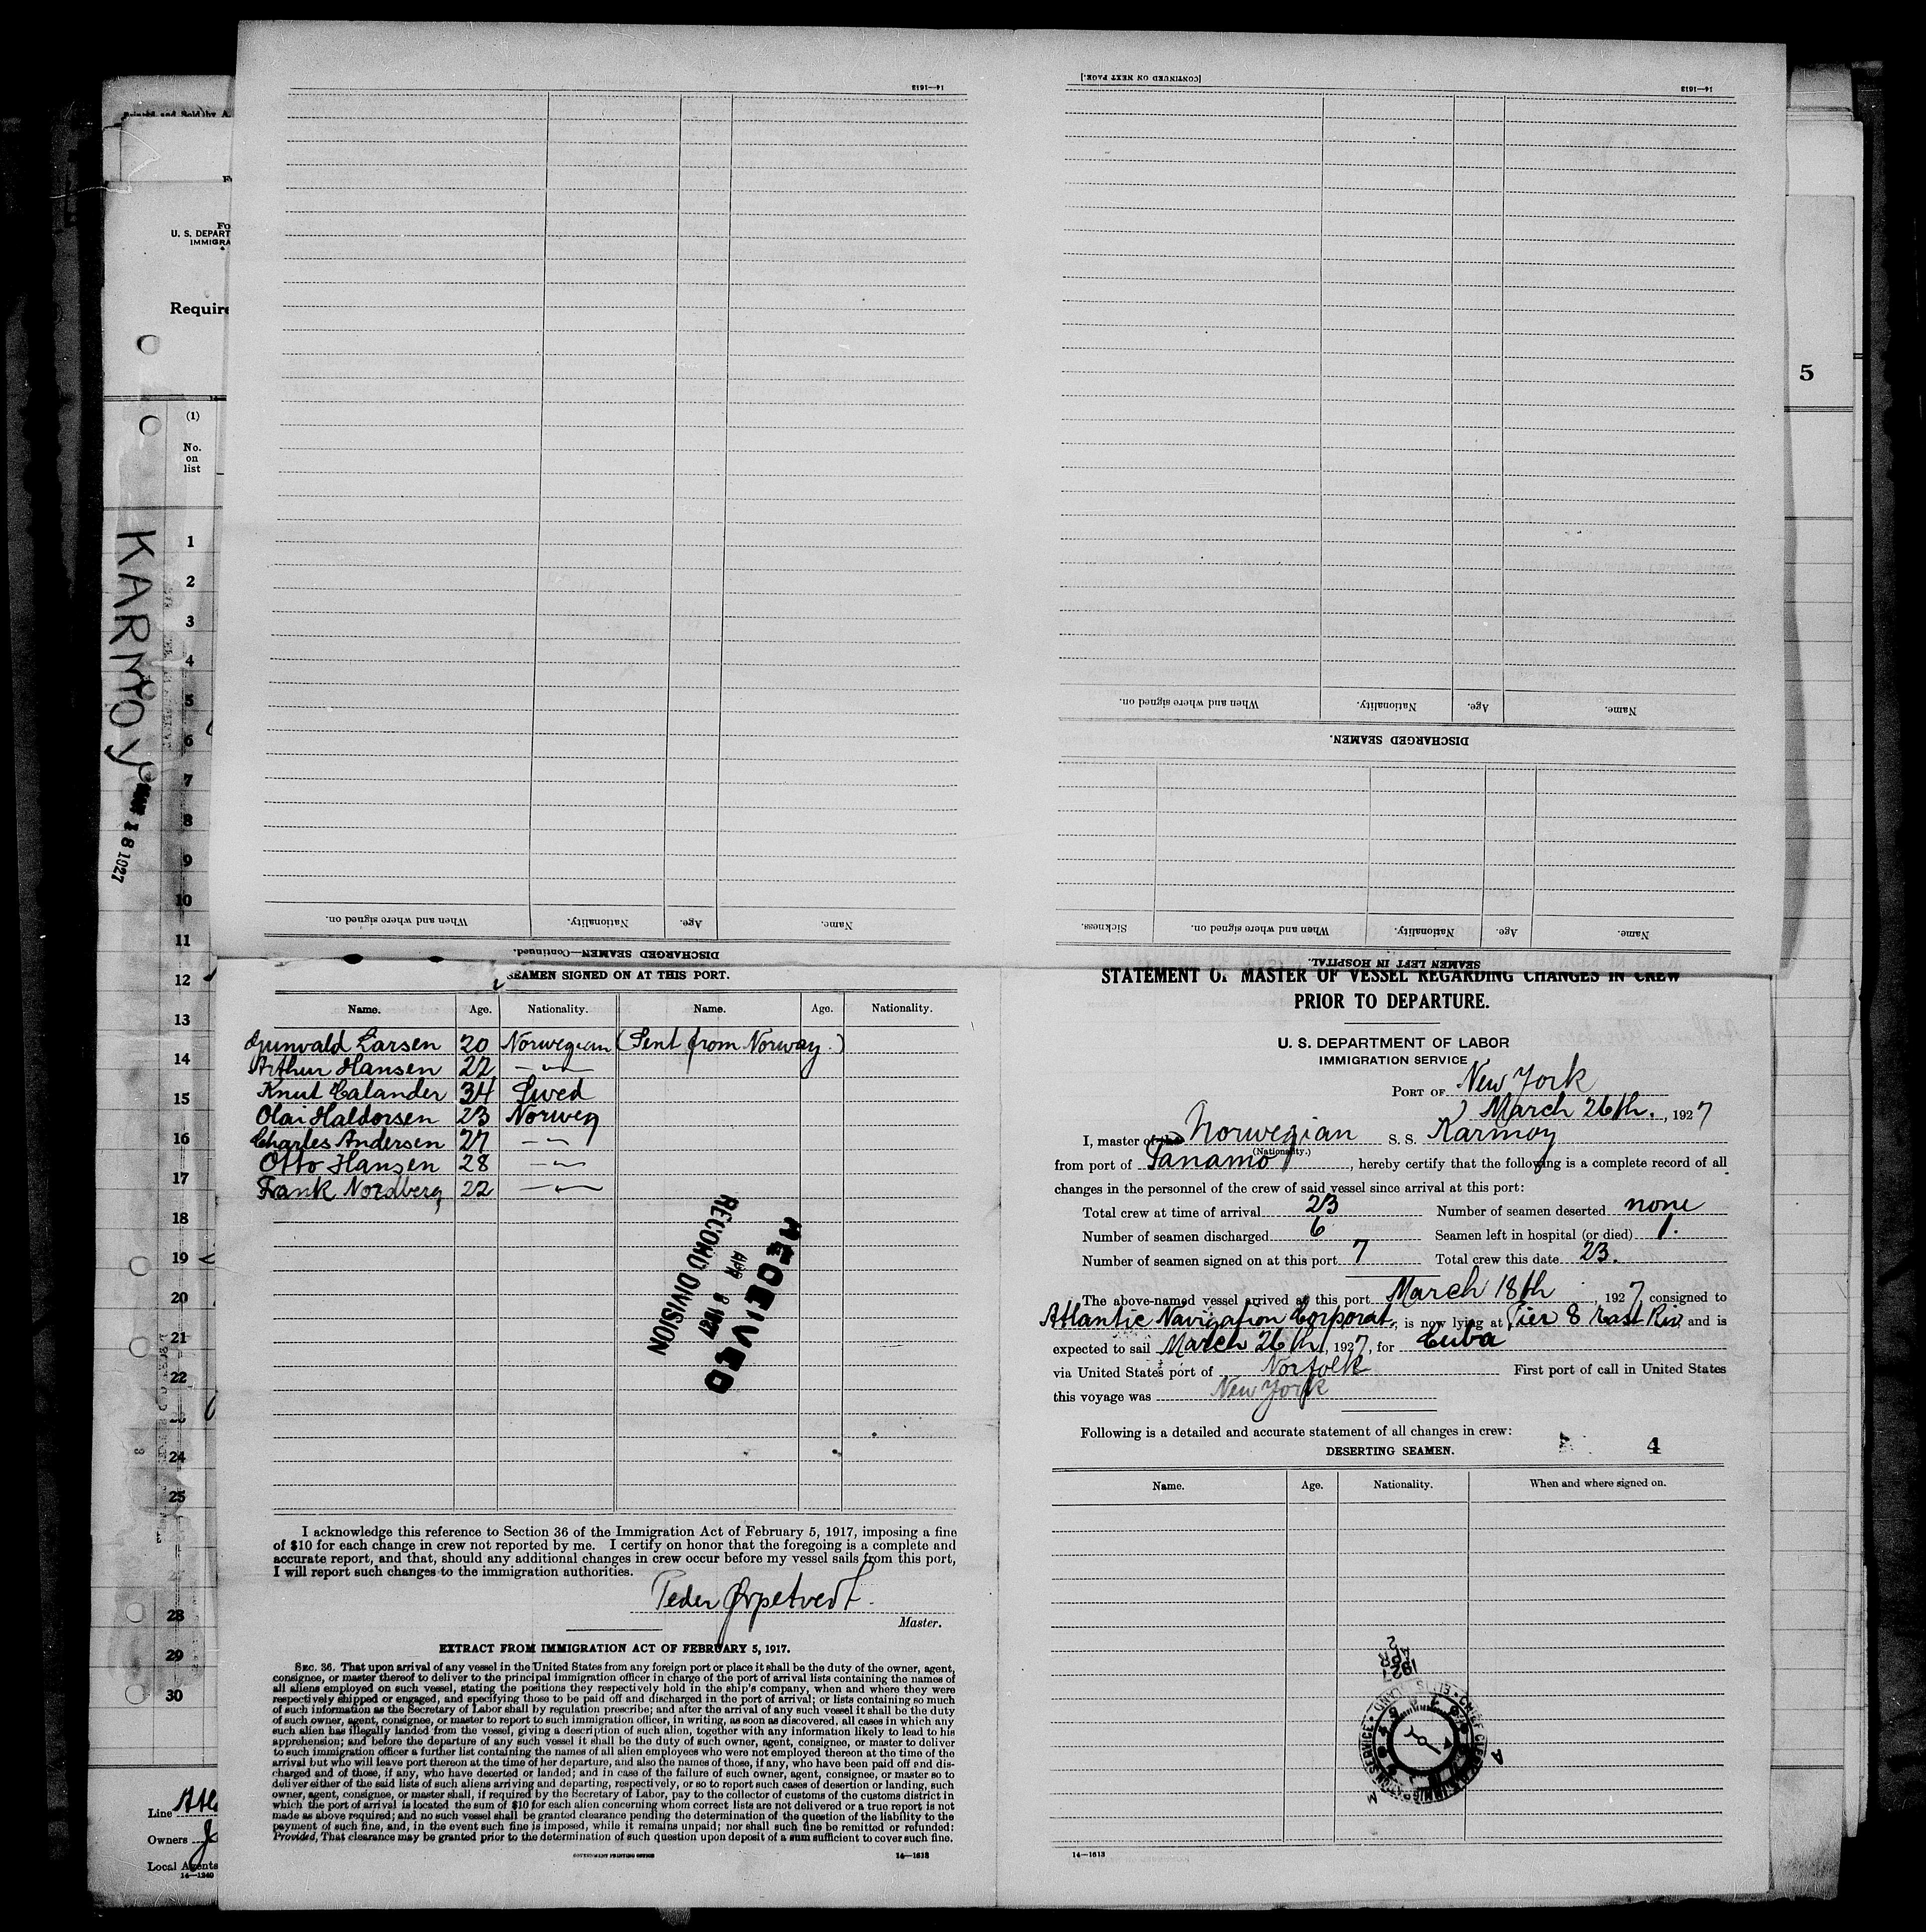 [CONTINUED ON NEXT PAGE.]
14—1613
14—1613
5
U. S. DEPART
IMMIGRA
Require
(1)
No.
on
list
KARMOY
18 1927
1
2
3
4
5
6
7
8
9
10
11
12
13
14
15
16
17
18
19
20
21
22
24
25
28
29
30
Line
Owners
Local Agents
14—1240
When and where signed on. Nationality. Age. Name.
DISCHARGED SEAMEN.
Sickness. When and where signed on. Nationality. Age. Name.
SEAMEN LEFT IN HOSPITAL.
When and where signed on. Nationality. Age. Name.
DISCHARGED SEAMEN—Continued.
SEAMEN SIGNED ON AT THIS PORT.
Name. Age. Nationality. Name. Age. Nationality.
Gunvald Larsen 20 Norwegian (Sent from Norway.)
Arthur Hansen 22 —"—
Knut Calander 34 Swed
Olai Haldorsen 23 Norweg
Charles Andersen 27 —"—
Otto Hansen 28 —"—
Frank Nordberg 22 —"—
RECEIVED
APR 8 1927
RECORD DIVISION
I acknowledge this reference to Section 36 of the Immigration Act of February 5, 1917, imposing a fine
of $10 for each change in crew not reported by me. I certify on honor that the foregoing is a complete and
accurate report, and that, should any additional changes in crew occur before my vessel sails from this port,
I will report such changes to the immigration authorities.
Peder Ørpetvedt
Master.
EXTRACT FROM IMMIGRATION ACT OF FEBRUARY 5, 1917.
SEC. 36. That upon arrival of any vessel in the United States from any foreign port or place it shall be the duty of the owner, agent,
consignee, or master thereof to deliver to the principal immigration officer in charge of the port of arrival lists containing the names of
all aliens employed on such vessel, stating the positions they respectively hold in the ship's company, when and where they were
respectively shipped or engaged, and specifying those to be paid off and discharged in the port of arrival; or lists containing so much
of such information as the Secretary of Labor shall by regulation prescribe; and after the arrival of any such vessel it shall be the duty
of such owner, agent, consignee, or master to report to such immigration officer, in writing, as soon as discovered, all cases in which any
such alien has illegally landed from the vessel, giving a description of such alien, together with any information likely to lead to his
apprehension; and before the departure of any such vessel it shall be the duty of such owner, agent, consignee, or master to deliver
to such immigration officer a further list containing the names of all alien employees who were not employed thereon at the time of the
arrival but who will leave port thereon at the time of her departure, and also the names of those, if any, who have been paid off and dis-
charged and of those, if any, who have deserted or landed; and in case of the failure of such owner, agent, consignee, or master so to
deliver either of the said lists of such aliens arriving and departing, respectively, or so to report such cases of desertion or landing, such
owner, agent, consignee, or master shall, if required by the Secretary of Labor, pay to the collector of customs of the customs district in
which the port of arrival is located the sum of $10 for each alien concerning whom correct lists are not delivered or a true report is not
made as above required; and no such vessel shall be granted clearance pending the determination of the question of the liability to the
payment of such fine, and, in the event such fine is imposed, while it remains unpaid; nor shall such fine be remitted or refunded:
Provided, That clearance may be granted prior to the determination of such question upon deposit of a sum sufficient to cover such fine.
GOVERNMENT PRINTING OFFICE 14—1613
STATEMENT OF MASTER OF VESSEL REGARDING CHANGES IN CREW
PRIOR TO DEPARTURE.
U. S. DEPARTMENT OF LABOR
IMMIGRATION SERVICE
PORT OF New York
March 26th., 1927
I, master of the Norwegian S. S. Karmoy
(Nationality.)
from port of Tanamo, hereby certify that the following is a complete record of all
changes in the personnel of the crew of said vessel since arrival at this port:
Total crew at time of arrival 23 Number of seamen deserted none
Number of seamen discharged 6 Seamen left in hospital (or died) 1.
Number of seamen signed on at this port 7 Total crew this date 23.
The above-named vessel arrived at this port March 18th, 1927, consigned to
Atlantic Navigation Corporat, is now lying at Pier 8 East Riv and is
expected to sail March 26th, 1927, for Cuba
via United States port of Norfolk First port of call in United States
this voyage was New York
Following is a detailed and accurate statement of all changes in crew:
4
DESERTING SEAMEN.
Name. Age. Nationality. When and where signed on.
1927
APR
2
14—1613